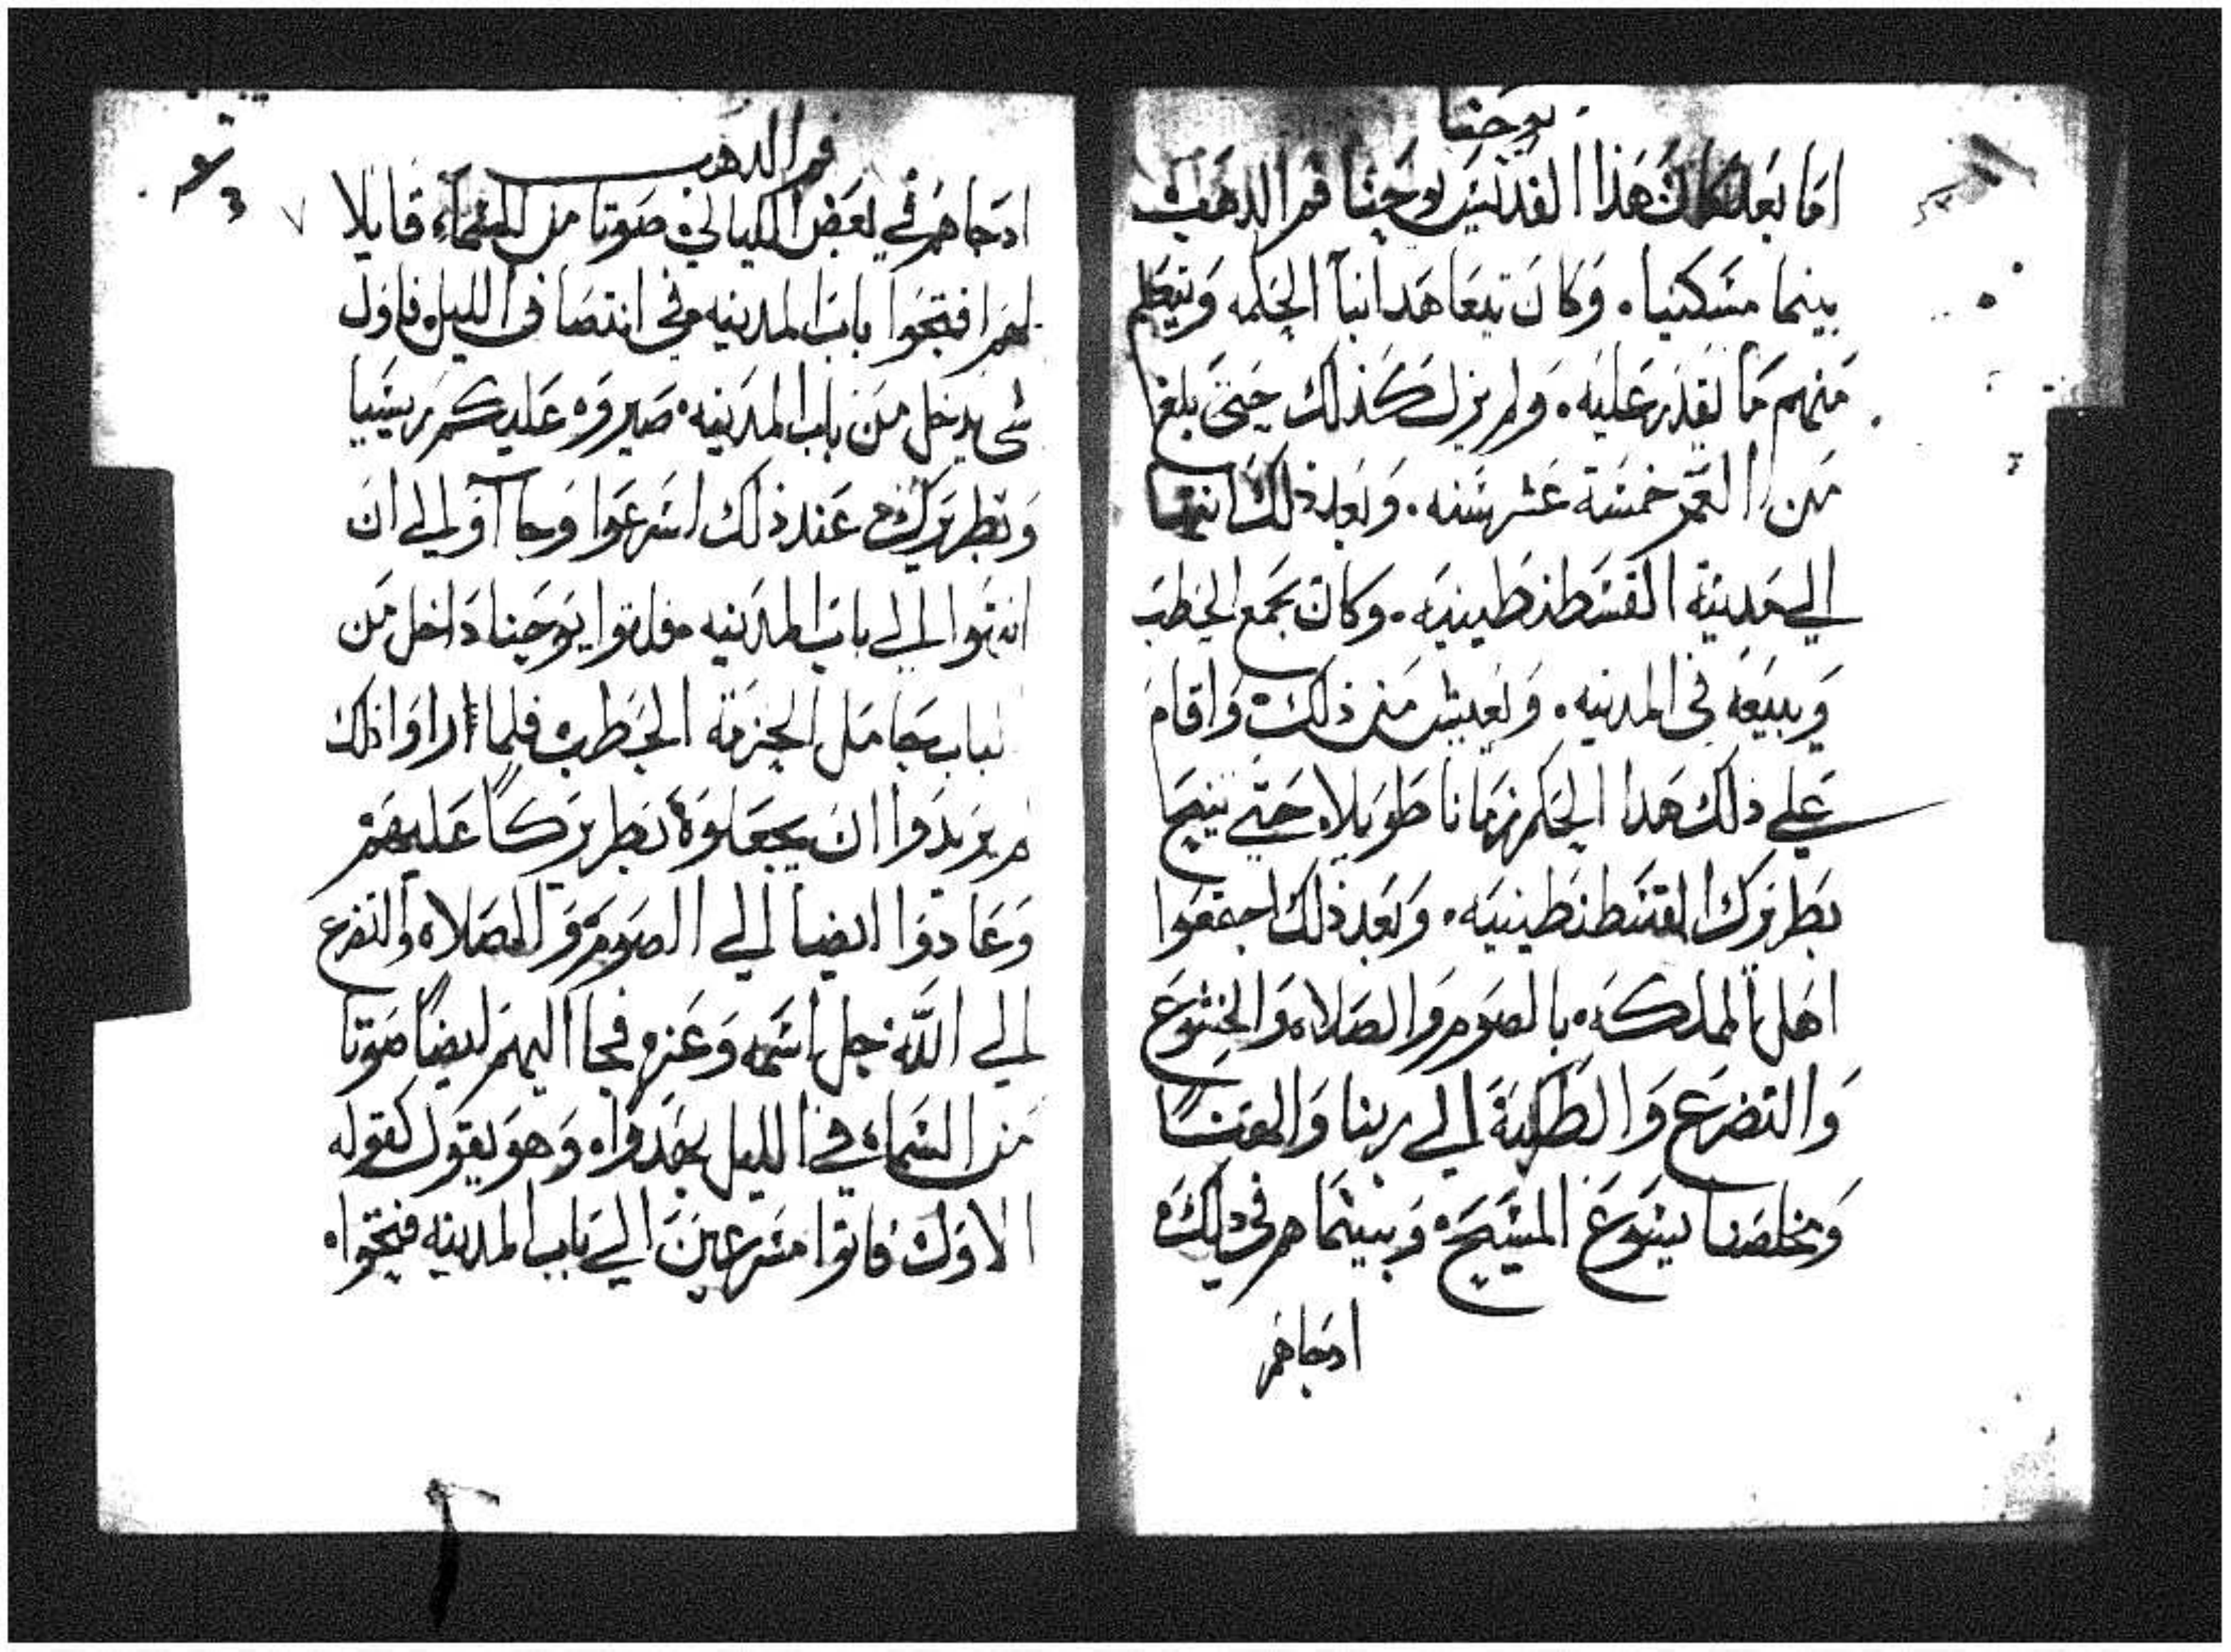 يوحنا
اما بعد كان هذا القديس يوحنا فم الدهب
يتيما مسكينا. وكان يتعاهد انبا الحكمه ويتعلم
منهم ما يقدر عليه. ولم يزل كذلك حتى بلغ
من العمر خمسة عشر سنه. وبعد ذلك
الي مدينة القسطنطينيه. وكان يجمع الحطب
ويبيعه في المدينه. ويعيش من ذلك واقام
علي ذلك هدا الحكم زمانا طويلا. حتي يتيح
بطريرك القسطنطينيه. وبعد ذلك اجتمعوا
اهل المملكه. بالصوم والصلاه والخشوع
والتضرع والطلبة الي ربنا والهنا
ومخلصنا يسوع المسيح. وبينما هم في دلك
ادجاهم
فم الدهب
ادجاهم في بعض الليالي صوتا من السماء قايلا
لهم افتحوا باب المدينه في انتصاف الليل فاول
شي يدخل من باب المدينه. صيروه عليكم رييسا
وبطريرك عند ذلك اسرعوا وجآآو الي ان
اتوا الي باب المدينه فلقوا يوحنا داخل من
الباب حامل الحزمة الحطب فلما اراوا ذلك
لم يريدوا ان يجعلوه بطريركا عليهم
وعادوا ايضا الي الصوم والصلاه والتضرع
الي الله جل اسمه وعز. فجا اليهم ايضا صوتا
من السماء في الليل وهو يقول كقوله
الاول فاتوا مسرعين الي باب المدينه فتحوا.